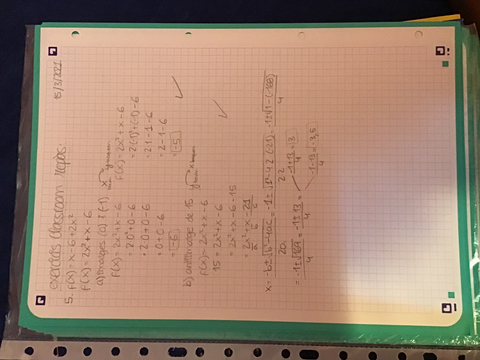 exercicis classroom repàs. 15/3/2021
5. f(x) = x - 6 + 2x²
f(x) = 2x² + x - 6
a) imatges (0) i (-1)
f(x) = 2x² + x - 6
= 2·0² + 0 - 6
= 2·0 + 0 - 6
= 0 + 0 - 6
= -6
f(x) = 2x² + x - 6
= 2(-1)² + (-1) - 6
= 2·1 - 1 - 6
= 2 - 1 - 6
= -5
b) antiimatge de 15
f(x) = 2x² + x - 6
15 = 2x² + x - 6
= 2x² + x - 6 - 15
= 2x² + x - 21
a b c
x = -b ± √b² - 4ac / 2a = -1 ± √1² - 4·2·(-21) / 2·2 = -1 ± √1 - (-168) / 4
= -1 ± √169 / 4 = -1 ± 13 / 4
-1 + 13 / 4 = 3
-1 - 13 / 4 = -3,5